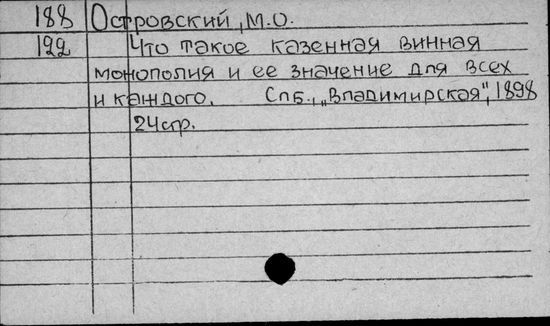 188 Островский, М.О.
122 Что такое казенная винная
монополия и ее значение для всех
и каждого. Спб., „Владимирская", 1898
24стр.